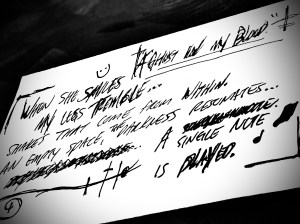 "A GHOST IN MY BLOOD"
WHEN SHE SMILES
MY LEGS TREMBLE...
SHAKES THAT COME FROM WITHIN.
AN EMPTY SPACE, THE RESONATES...
A SINGLE NOTE
IS PLAYED.